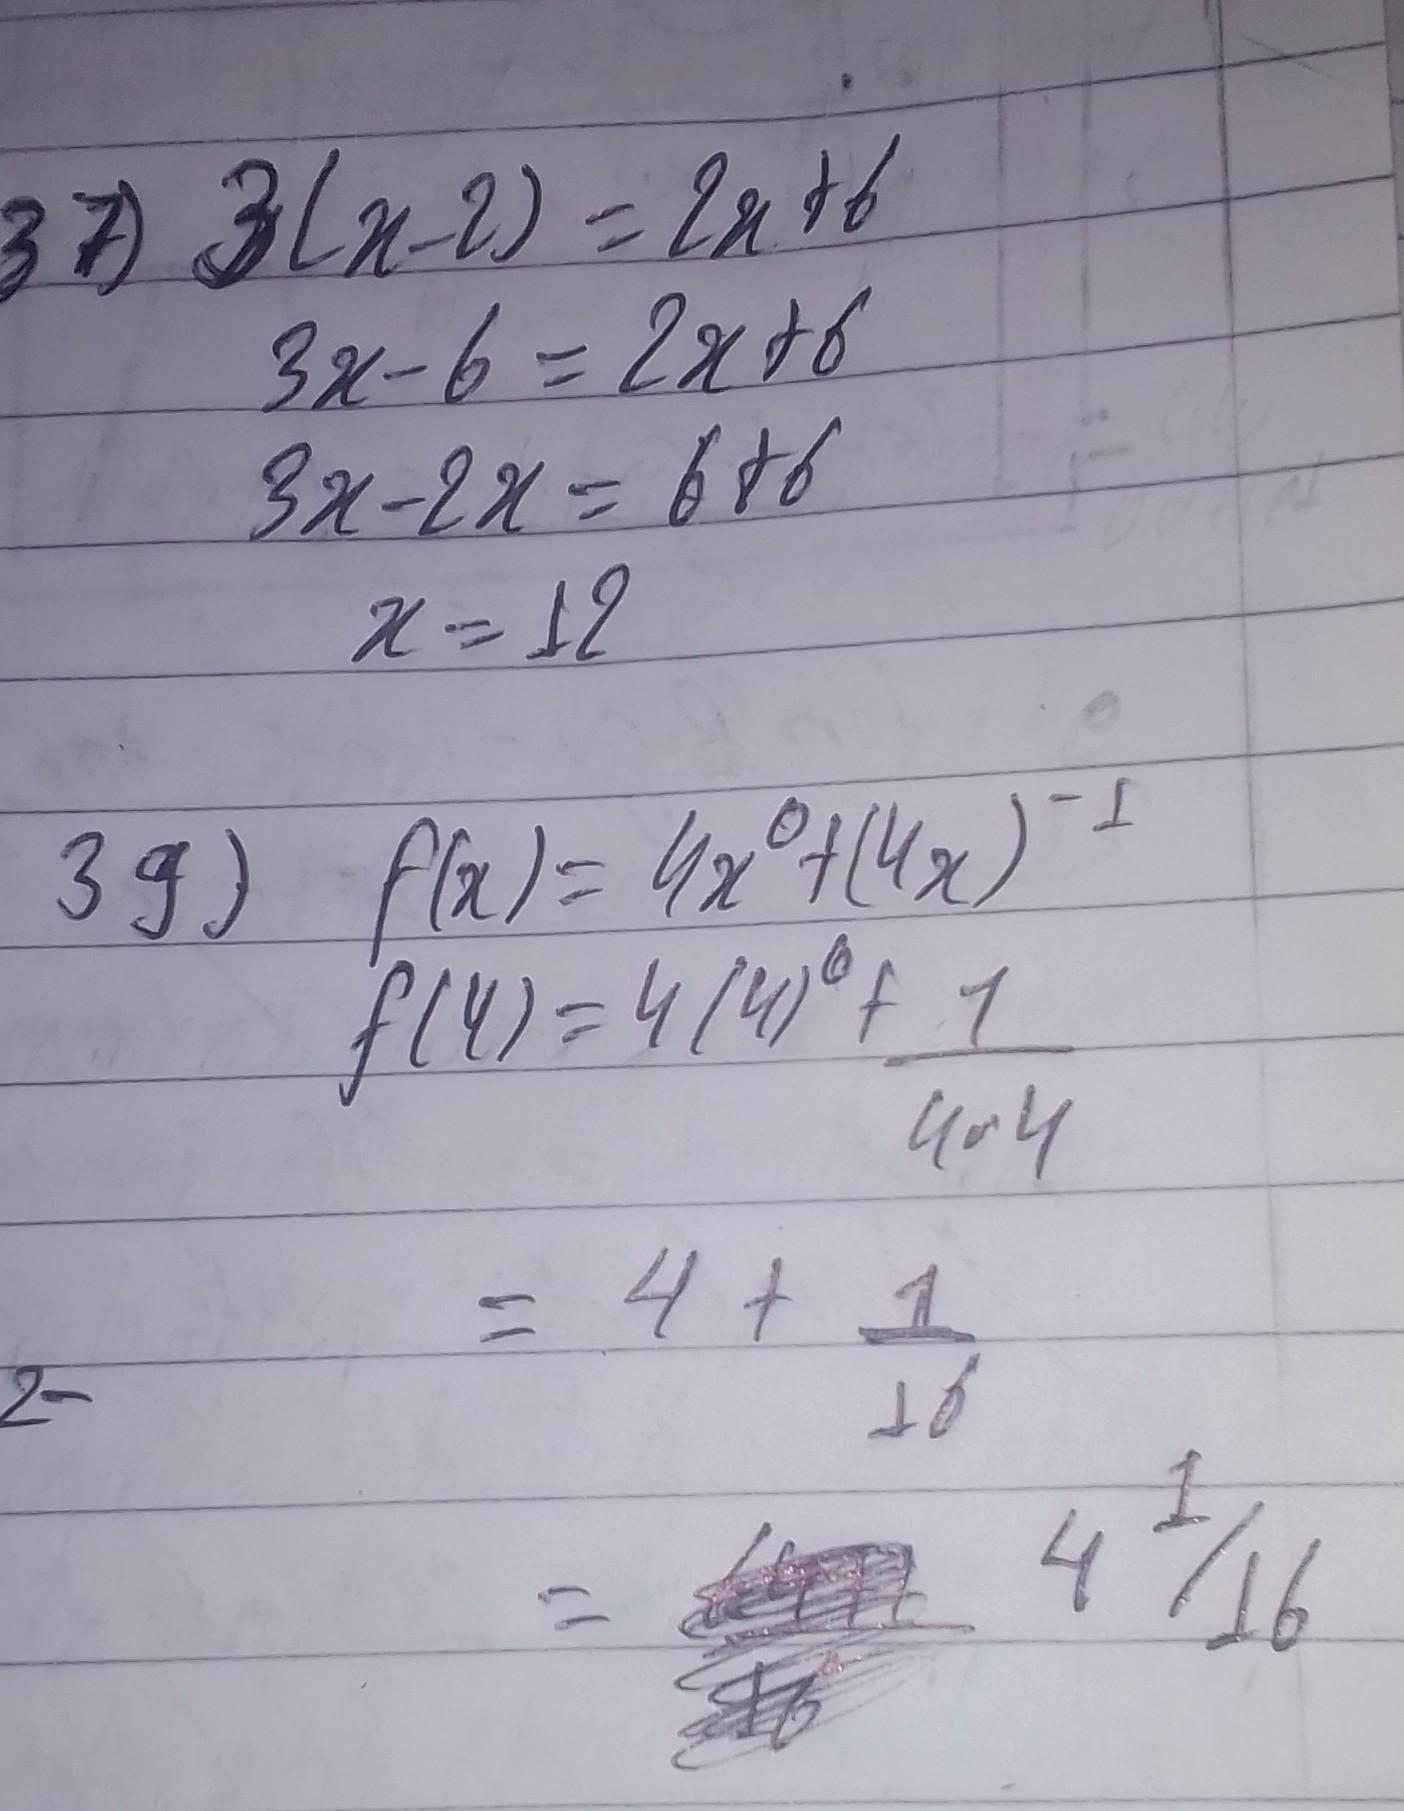 37) 3(x-2) = 2x+6
3x-6 = 2x+6
3x-2x = 6+6
x = 12
39) f(x) = 4x⁰+(4x)⁻¹
f(4) = 4(4)⁰+ 1/4·4
= 4 + 1/16
2-
= 4 1/16